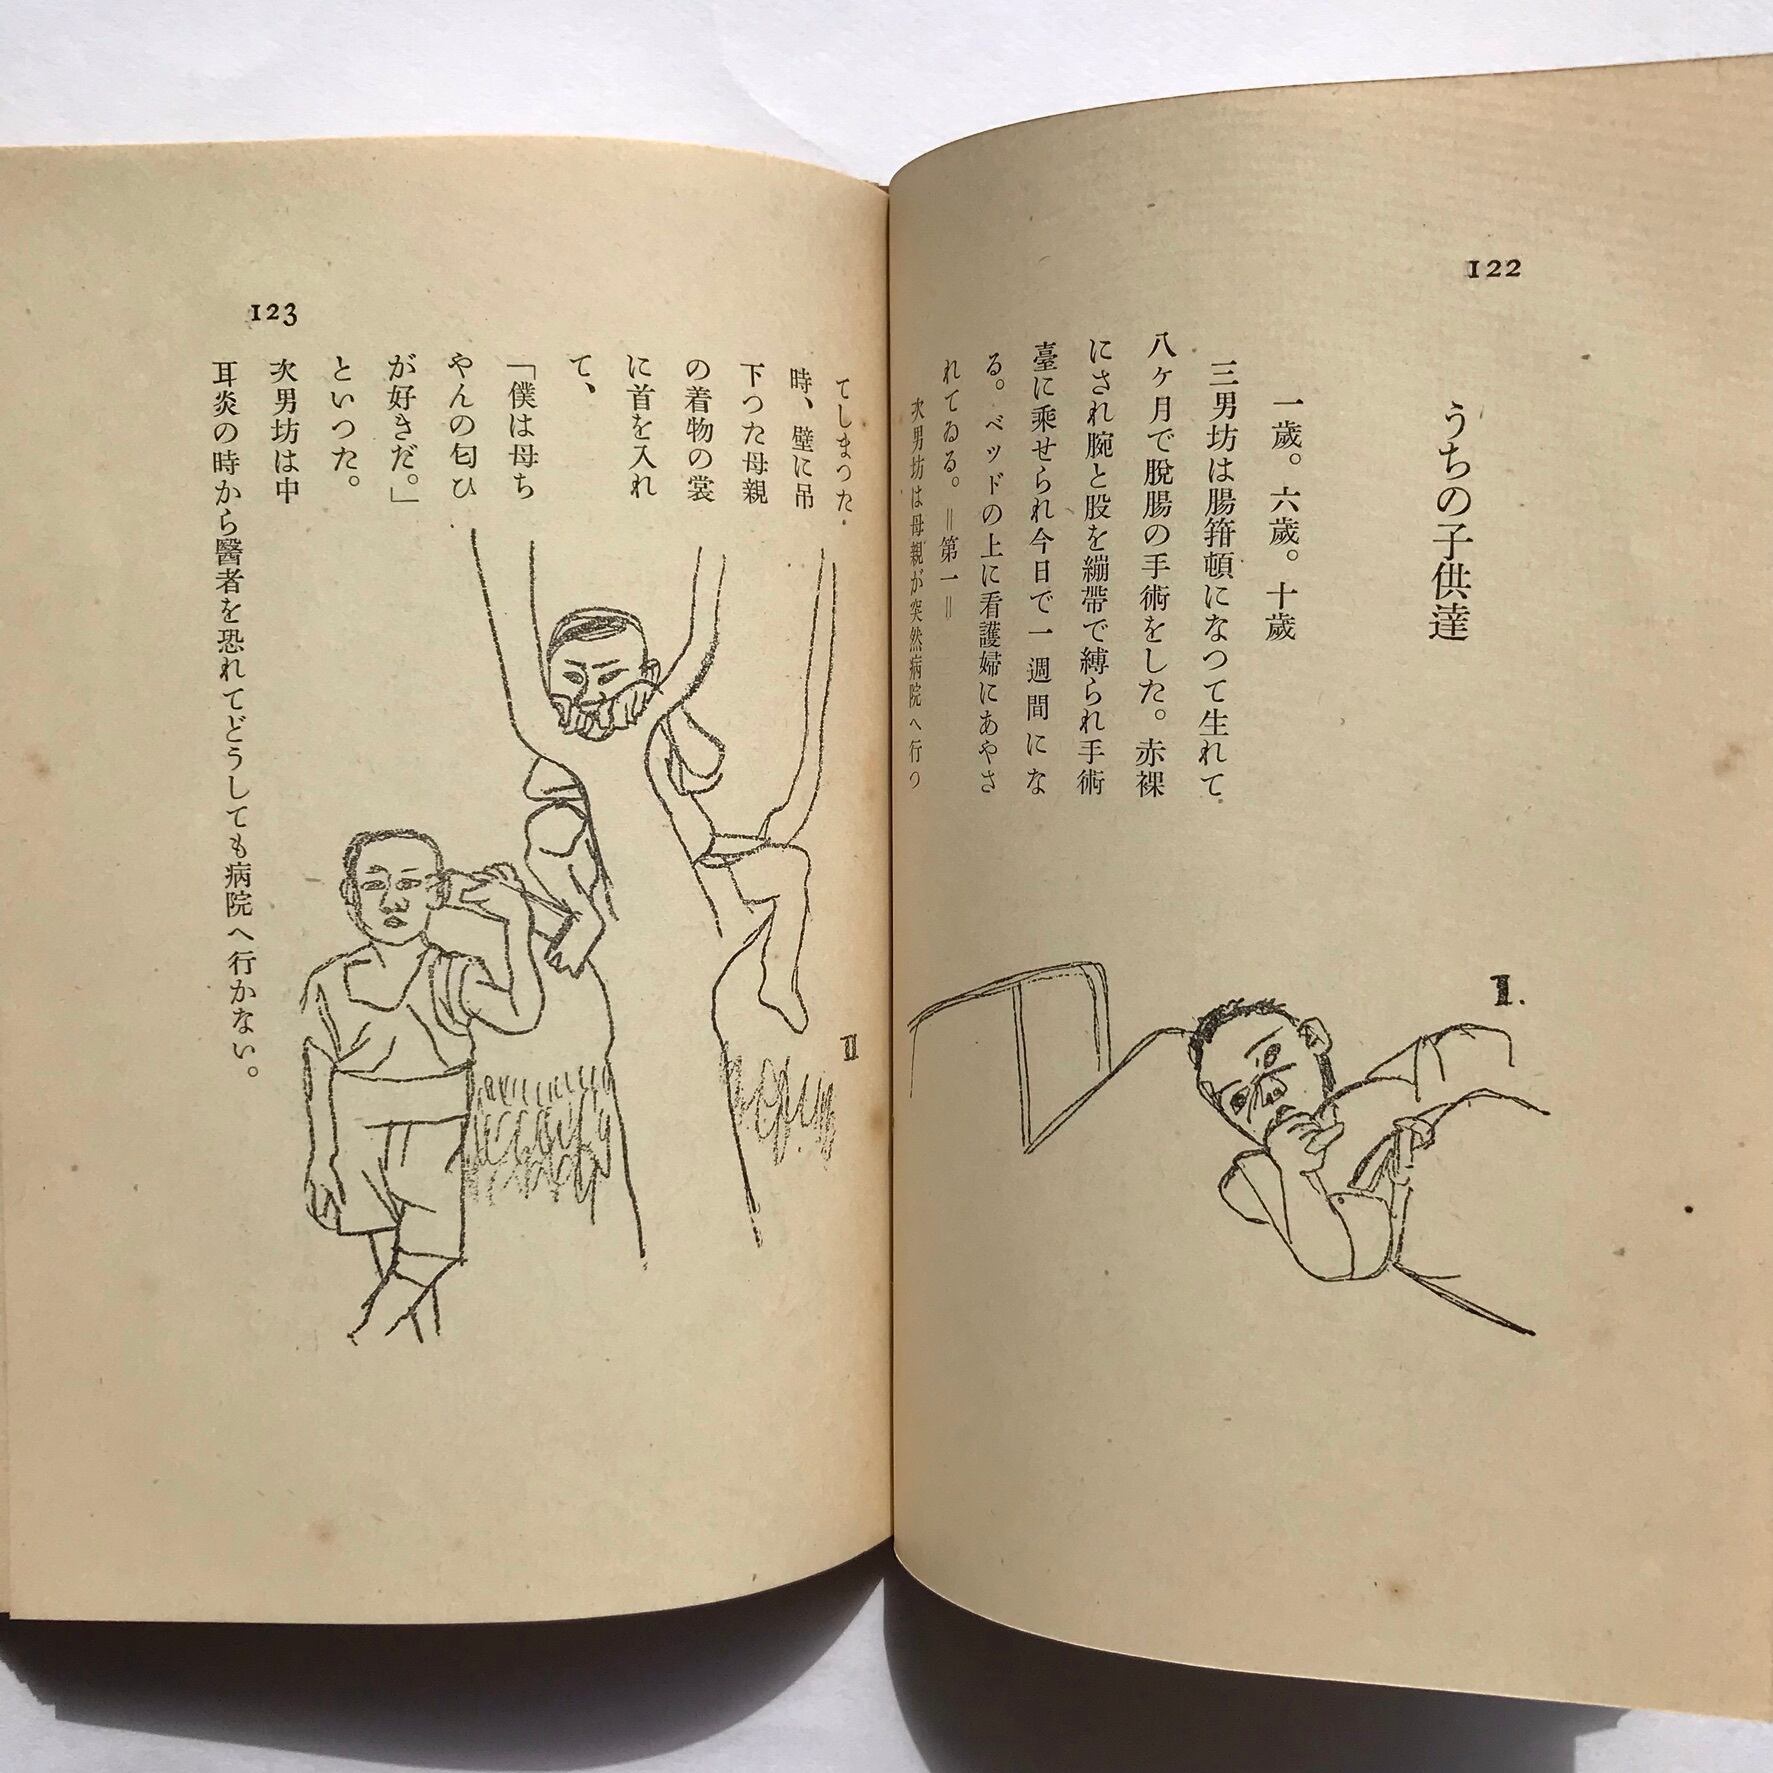 122
うちの子供達
一歳。六歳。十歳
三男坊は腸箝頓になつて生れて
八ヶ月で脫腸の手術をした。赤裸
にされ腕と股を繃帶で縛られ手術
臺に乘せられ今日で一週間にな
る。ベッドの上に看護婦にあやさ
れてゐる。=第一=
次男坊は母親が突然病院へ行つ
I.
123
てしまつた
時、壁に吊
下つた母親
の着物の裳
に首を入れ
て、
「僕は母ち
やんの匂ひ
が好きだ。」
といつた。
次男坊は中
耳炎の時から醫者を恐れてどうしても病院へ行かない。
II